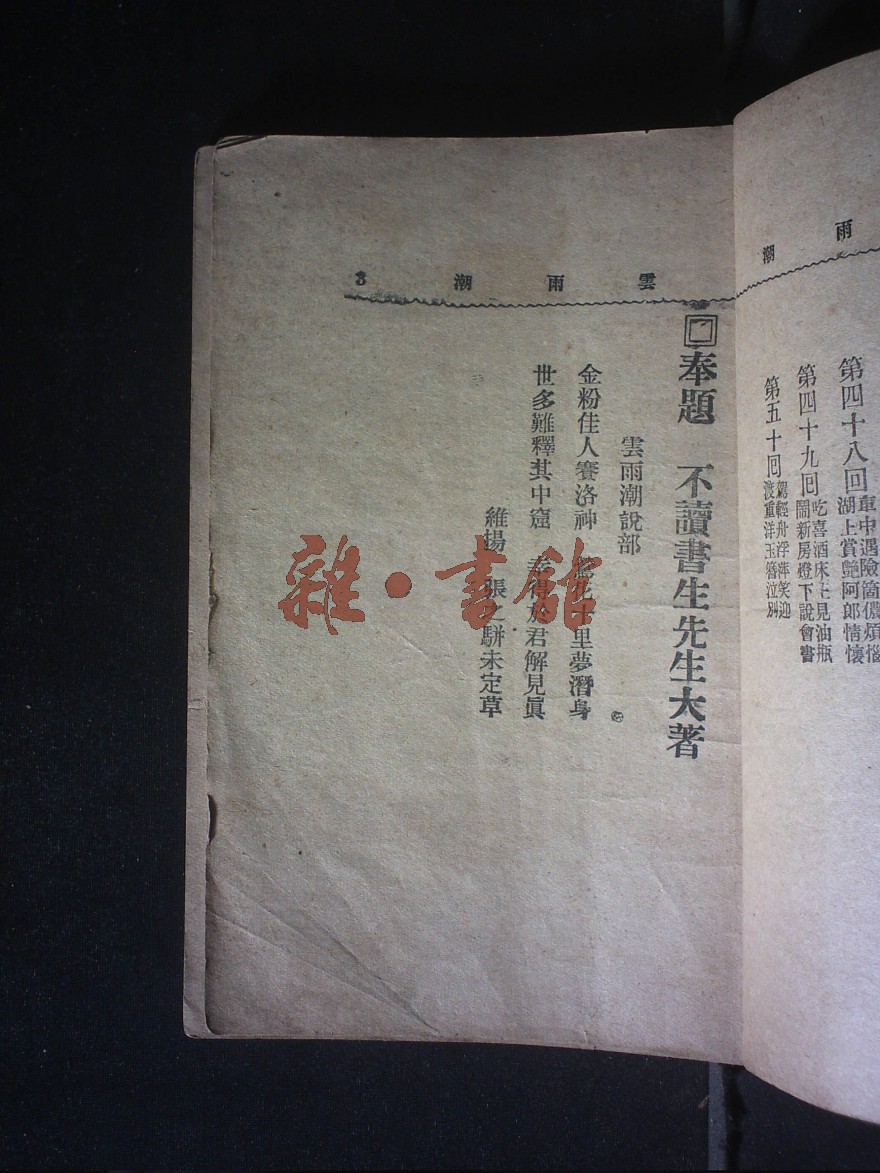 雨
潮
第四十八回 車中遇險箇儂煩惱
湖上賞艷阿郎情懷
第四十九回 吃喜酒床上見油瓶
鬧新房燈下說會書
第五十回 駕輕舟浮萍笑迎
渡重洋玉簪泣別
雲雨潮 3
奉題 不讀書生先生大著
雲雨潮說部
金粉佳人賽洛神 花十里夢潛身
世多難釋其中窟 幸得於君解見眞
維揚 張之駢未定草
雜·書館